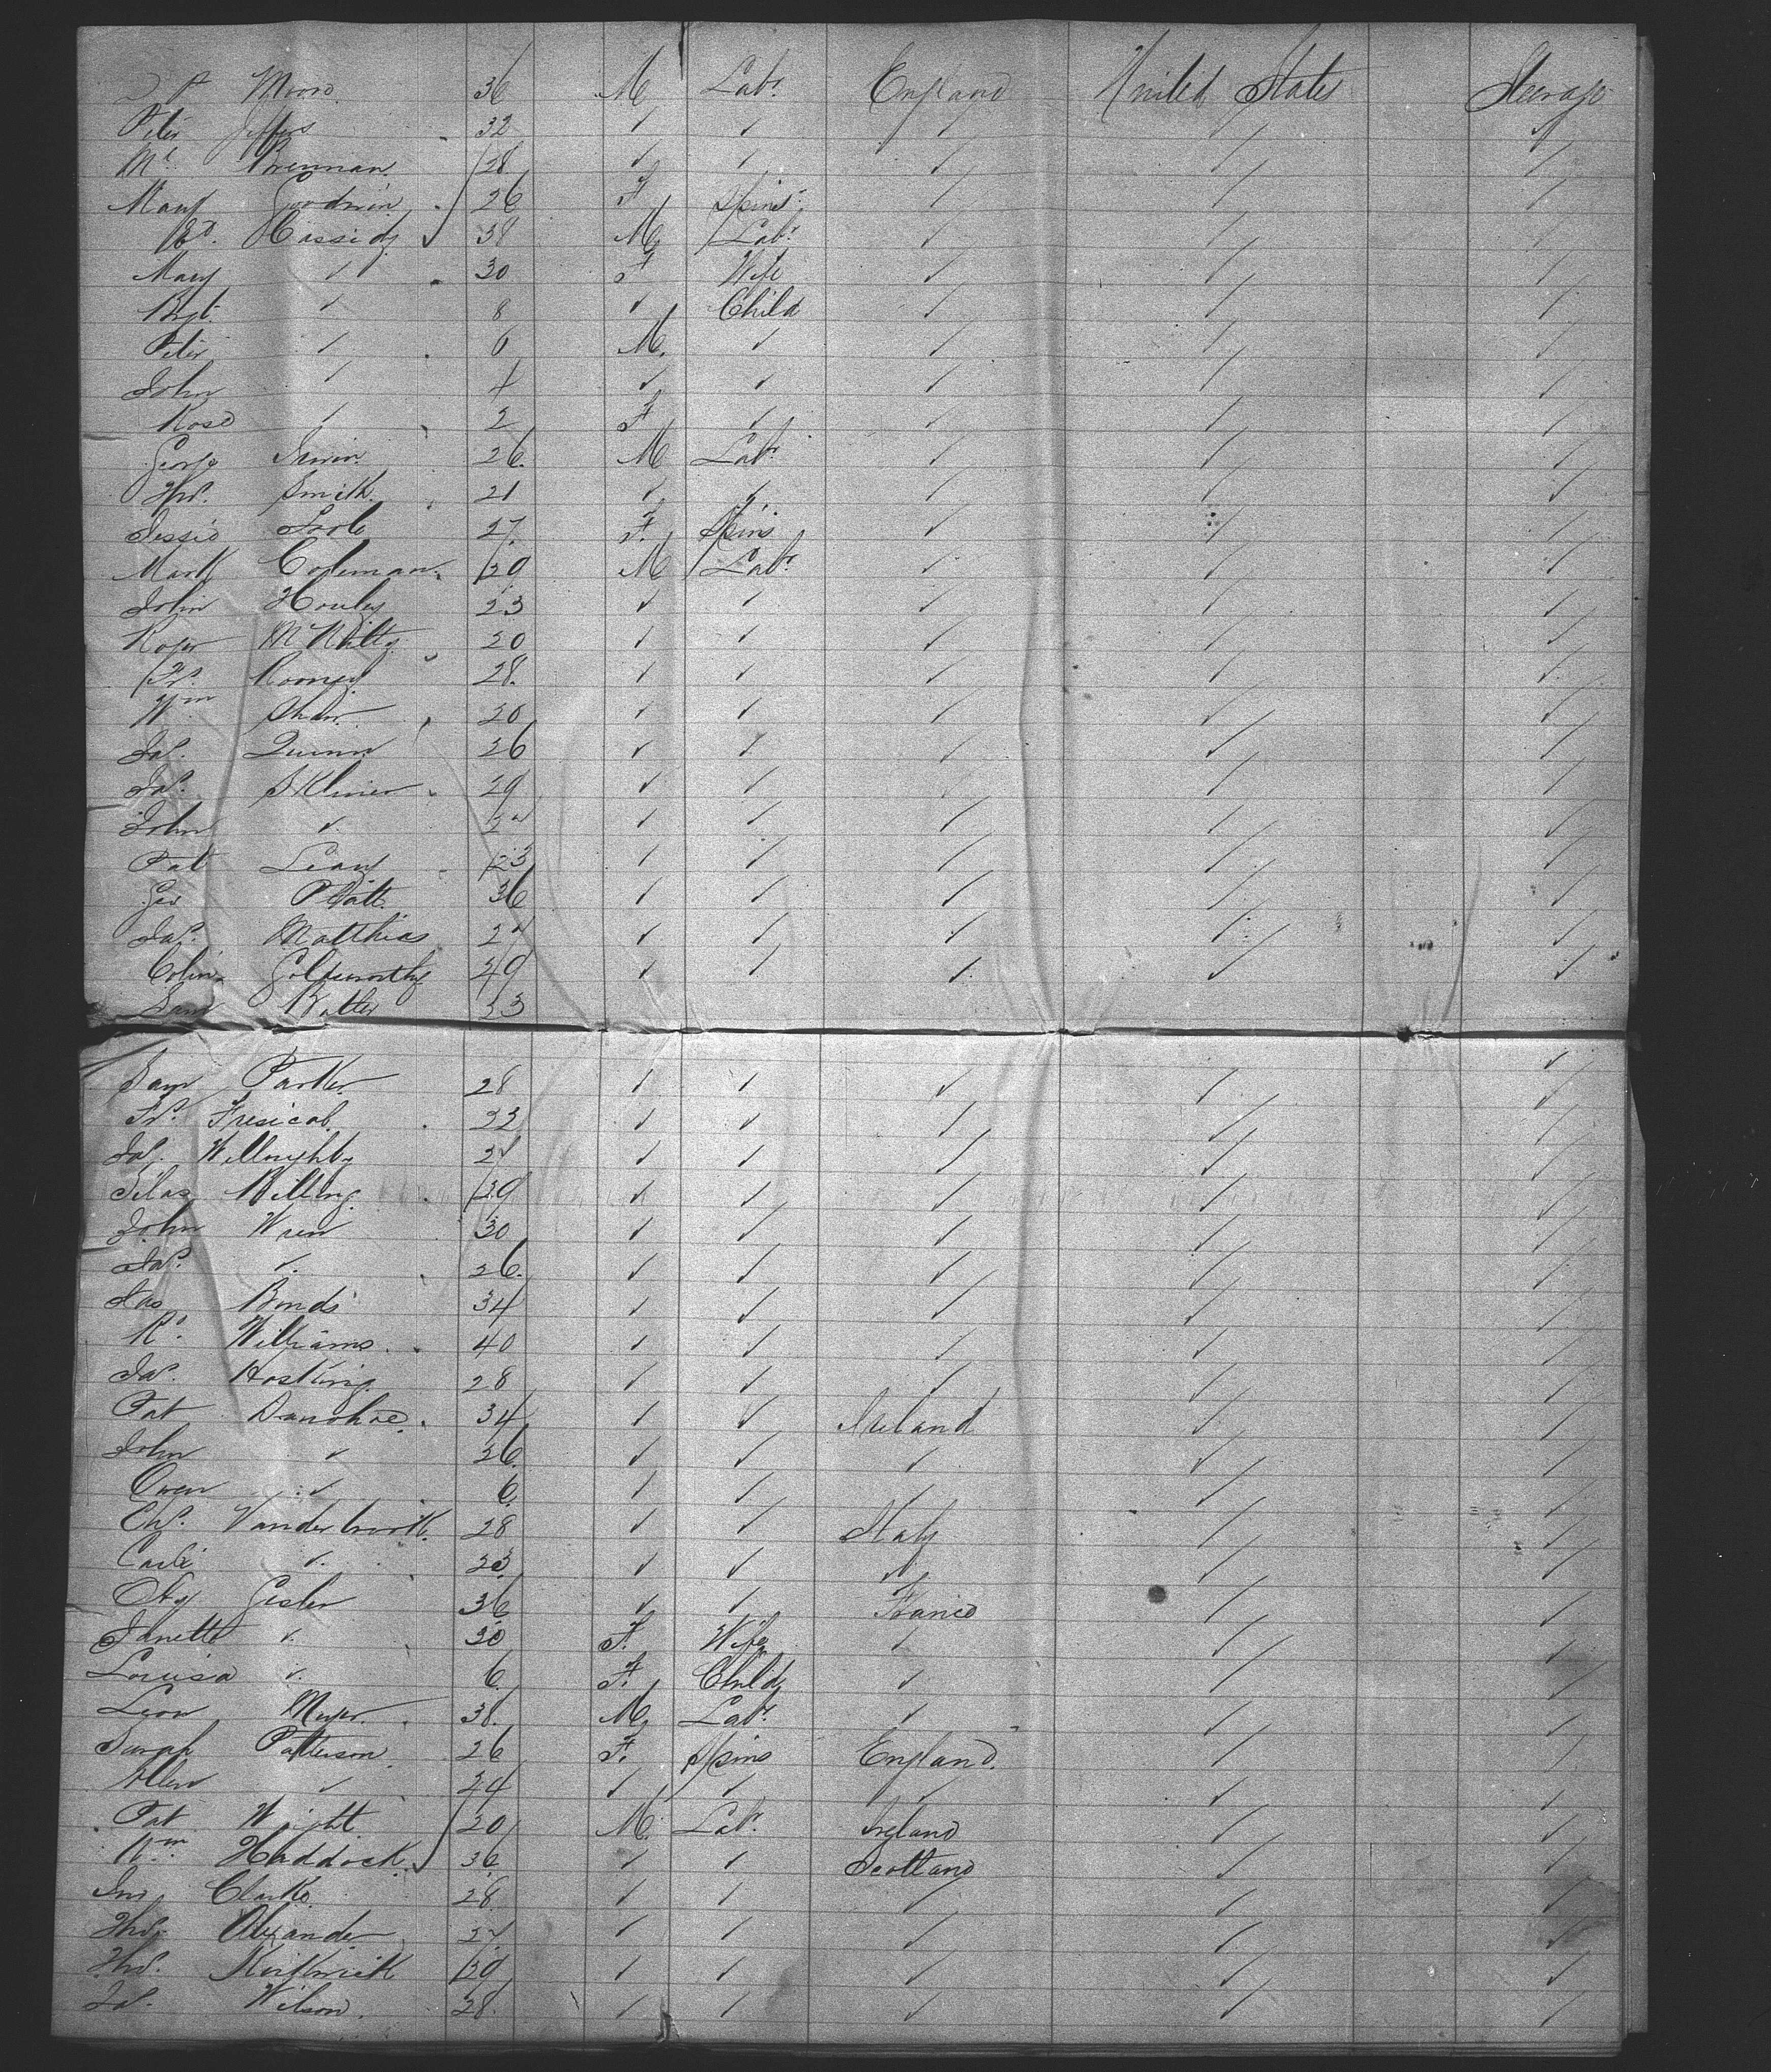 Moore 36 M Labr England United States Steerage
Peter Jeffers 32 ✓ ✓ ✓ ✓ ✓
Ml Brennan 28 ✓ ✓ ✓ ✓ ✓
Mary Goodwin 26 F Spins ✓ ✓ ✓
Ed. Cassidy 38 M Labr ✓ ✓ ✓
Mary ✓ 30 F Wife ✓ ✓ ✓
Bgt ✓ 8 ✓ Child ✓ ✓ ✓
Peter ✓ 6 M. ✓ ✓ ✓ ✓
John ✓ 4 ✓ ✓ ✓ ✓ ✓
Rose ✓ 2 F ✓ ✓ ✓ ✓
George Irwin 26 M Labr ✓ ✓ ✓
Thos. Smith 21 ✓ ✓ ✓ ✓ ✓
Jessie 27 F. Spins ✓ ✓ ✓
Mark Coleman M Labr ✓ ✓ ✓
John Howley 23 ✓ ✓ ✓ ✓ ✓
Roger McNulty 20 ✓ ✓ ✓ ✓ ✓
Rooney 28 ✓ ✓ ✓ ✓ ✓
Wm Shaw 20 ✓ ✓ ✓ ✓ ✓
Jas. Quinn 26 ✓ ✓ ✓ ✓ ✓
Jas. 29 ✓ ✓ ✓ ✓ ✓
John ✓ ✓ ✓ ✓ ✓ ✓
Pat Leavy 23 ✓ ✓ ✓ ✓ ✓
Geo Platt 36 ✓ ✓ ✓ ✓ ✓
Jas. Matthias ✓ ✓ ✓ ✓ ✓
Colin Goldsworthy 49 ✓ ✓ ✓ ✓ ✓
Saml 33
Saml Parker 28 ✓ ✓ ✓ ✓ ✓
✓ ✓ ✓ ✓ ✓
Jas. Willoughby ✓ ✓ ✓ ✓ ✓
Silas Billing ✓ ✓ ✓ ✓ ✓
John Wren 30 ✓ ✓ ✓ ✓ ✓
Jas. ✓ 26 ✓ ✓ ✓ ✓ ✓
Jas Bonds 34 ✓ ✓ ✓ ✓ ✓
Rd Williams 40 ✓ ✓ ✓ ✓ ✓
Jas. Hosking 28 ✓ ✓ ✓ ✓ ✓
Pat Danohoe 34 ✓ ✓ Ireland ✓ ✓
John ✓ 26 ✓ ✓ ✓ ✓ ✓
Owen ✓ 6 ✓ ✓ ✓ ✓ ✓
Chs. 28 ✓ ✓ Italy ✓ ✓
✓ 23 ✓ ✓ ✓ ✓ ✓
Gesler 36 ✓ ✓ France ✓ ✓
Janette ✓ 30 F. Wife ✓ ✓ ✓
Louisa ✓ 6 F. Child ✓ ✓ ✓
Leon Meyer 38 M Labr ✓ ✓ ✓
Sarah Patterson 26 F. Spins England ✓ ✓
Ellen ✓ 24 ✓ ✓ ✓ ✓ ✓
Pat Wright 20 M. Labr Ireland ✓ ✓
Wm Haddock 36 ✓ ✓ Scotland ✓ ✓
Jno Clarke 28 ✓ ✓ ✓ ✓ ✓
Thos. Alexander ✓ ✓ ✓ ✓ ✓
Thos. ✓ ✓ ✓ ✓ ✓
Jas. Wilson 28 ✓ ✓ ✓ ✓ ✓